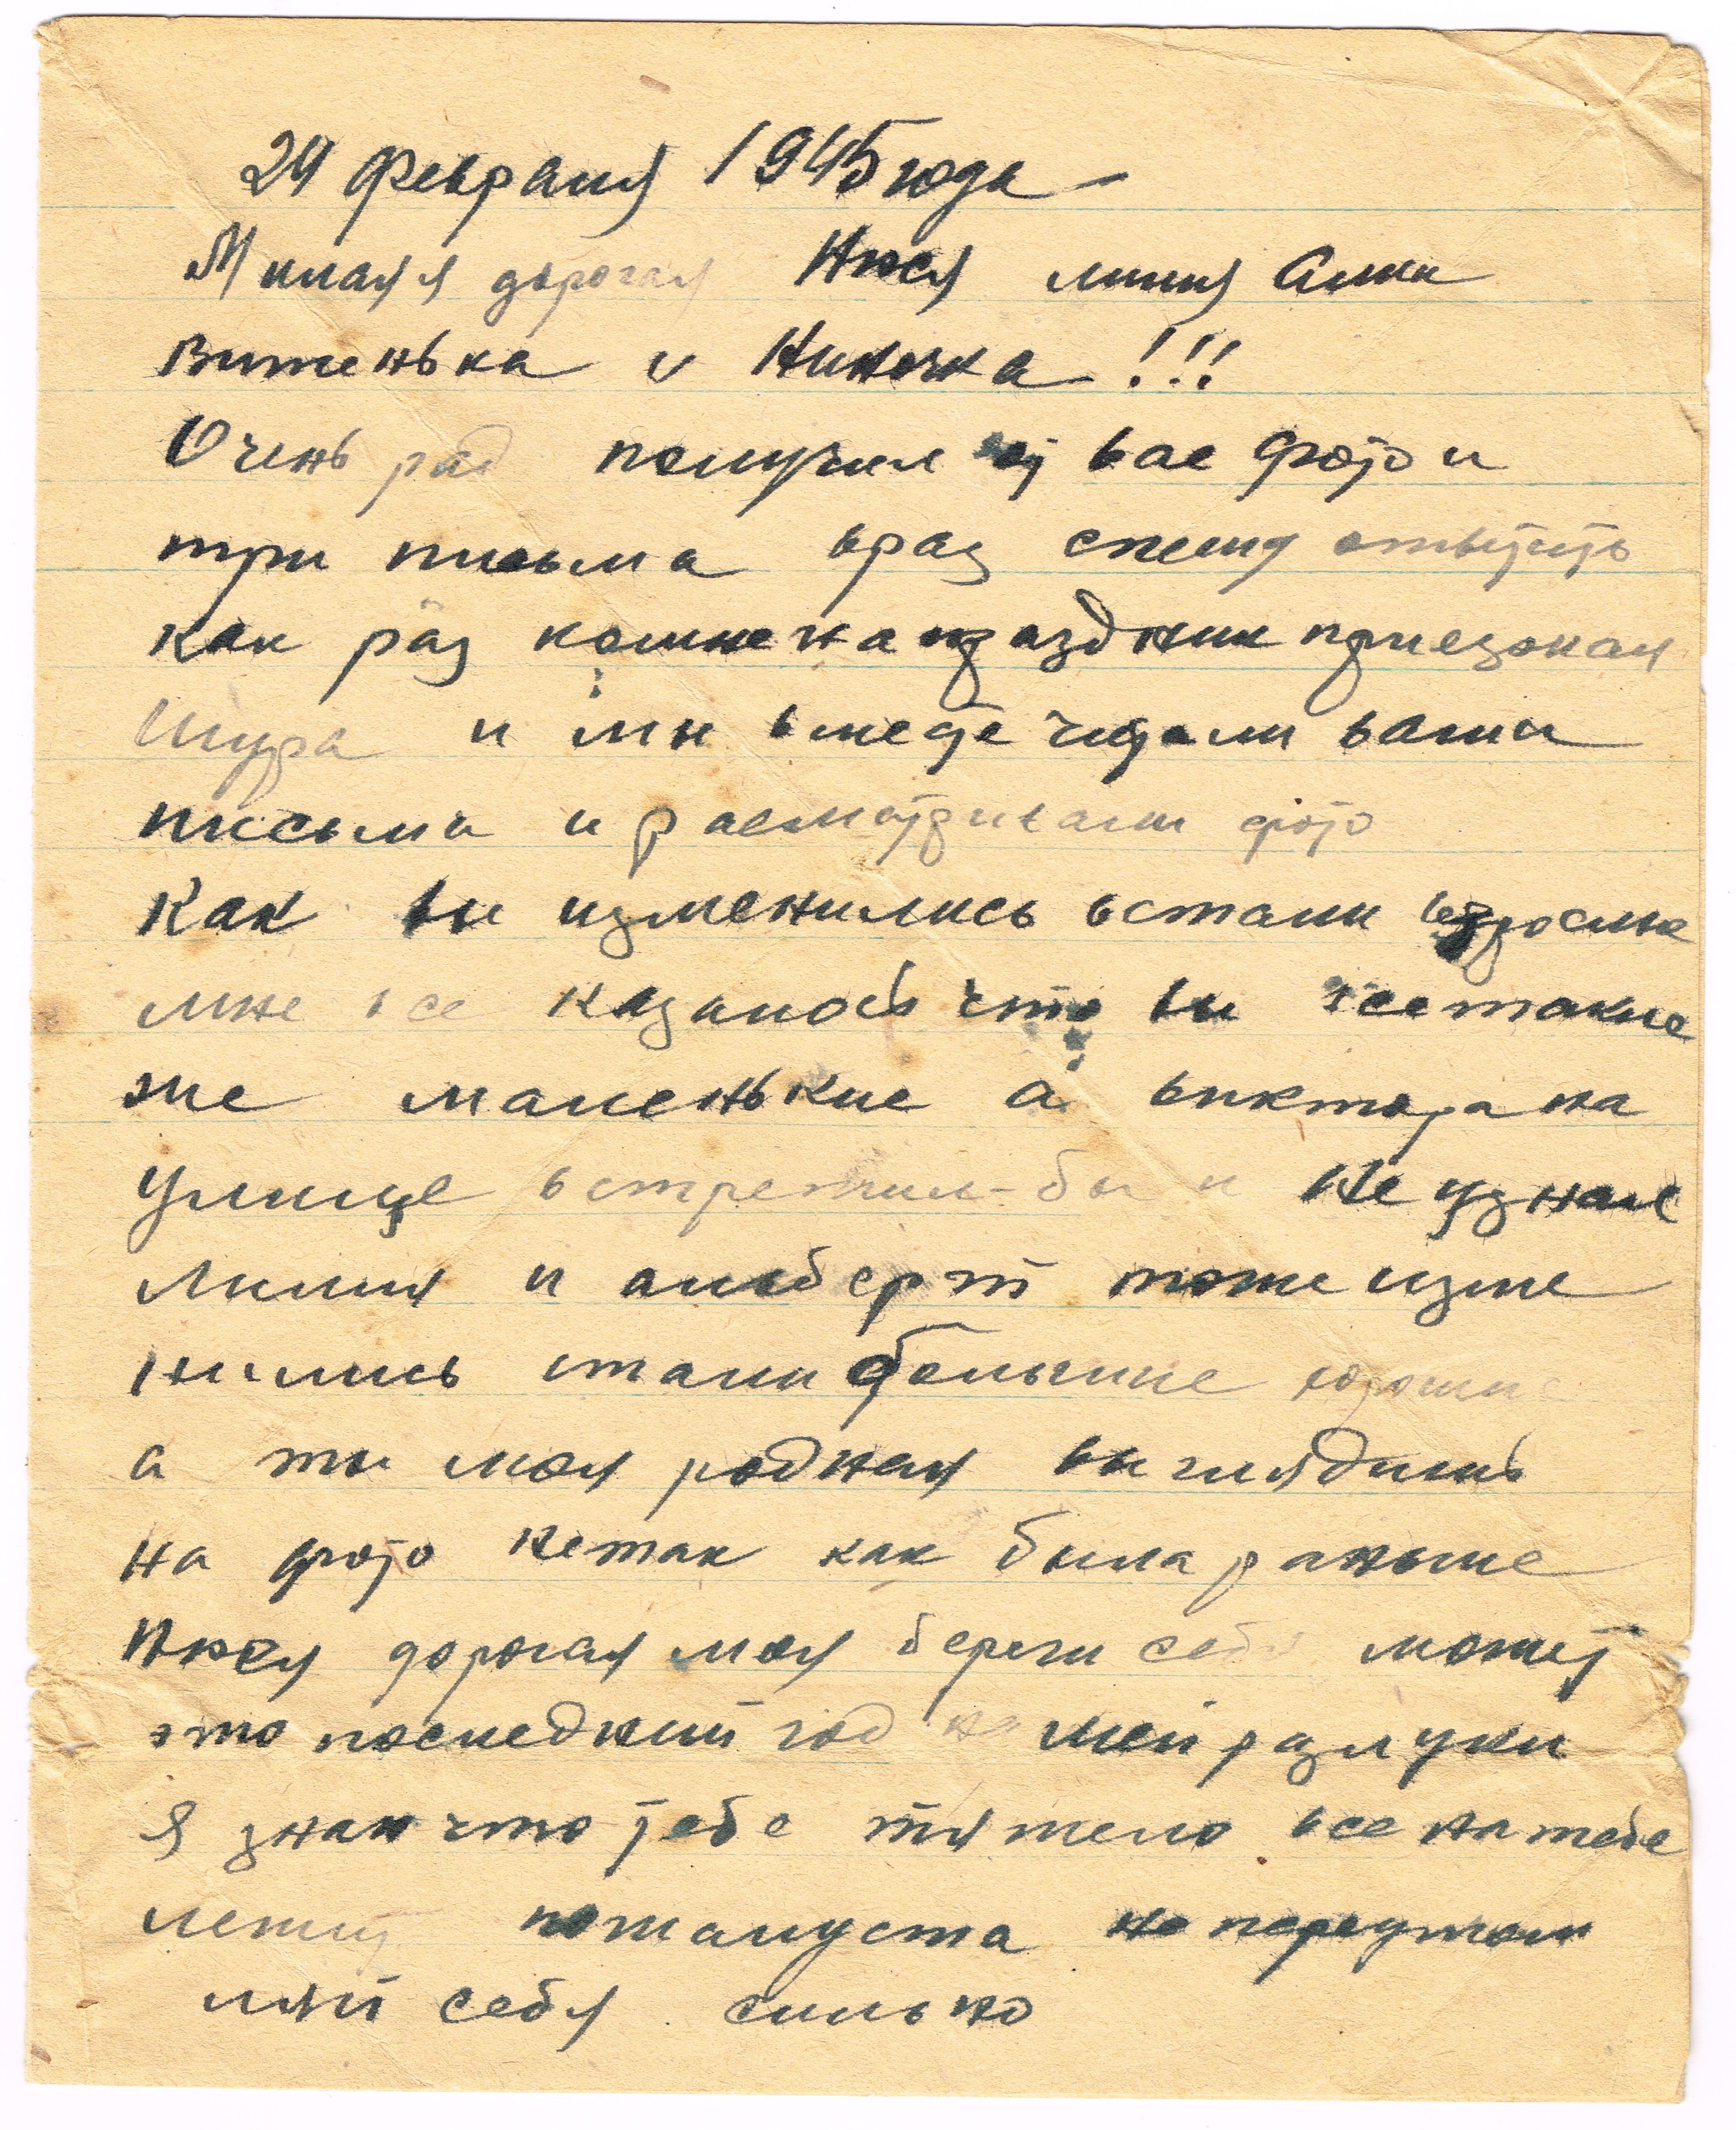 24 февраля 1945 года
Милая я дорогая Нюся лилия Алик
Витенька и Ниночка!!!
Очень рад получил от вас фото и
три письма враз спешу ответить
как раз комне на праздник приезжал
Шура и мы вместе читали ваши
письма и расматривали фото
Как вы изменились встали взрослые
мне все казалось что вы все такие
же маленькие а виктора на
улице встретил-бы и не узнал
Лилия и альберт тоже изме
нились стали большие хорошие
а ты моя родная выглядишь
на фото нетак как была раньше
Нюся дорогая моя береги себя может
это последний год нашей разлуки
Я знаю что тебе тяжело все на тебе
лежит пожалуста не переутом
ляй себя сильно